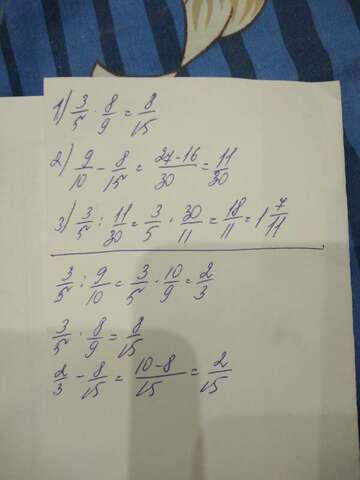 1) 3/5 · 8/9 = 8/15
2) 9/10 - 8/15 = 27-16/30 = 11/30
3) 3/5 : 11/30 = 3/5 · 30/11 = 18/11 = 1 7/11
3/5 : 9/10 = 3/5 · 10/9 = 2/3
3/5 · 8/9 = 8/15
2/3 - 8/15 = 10-8/15 = 2/15